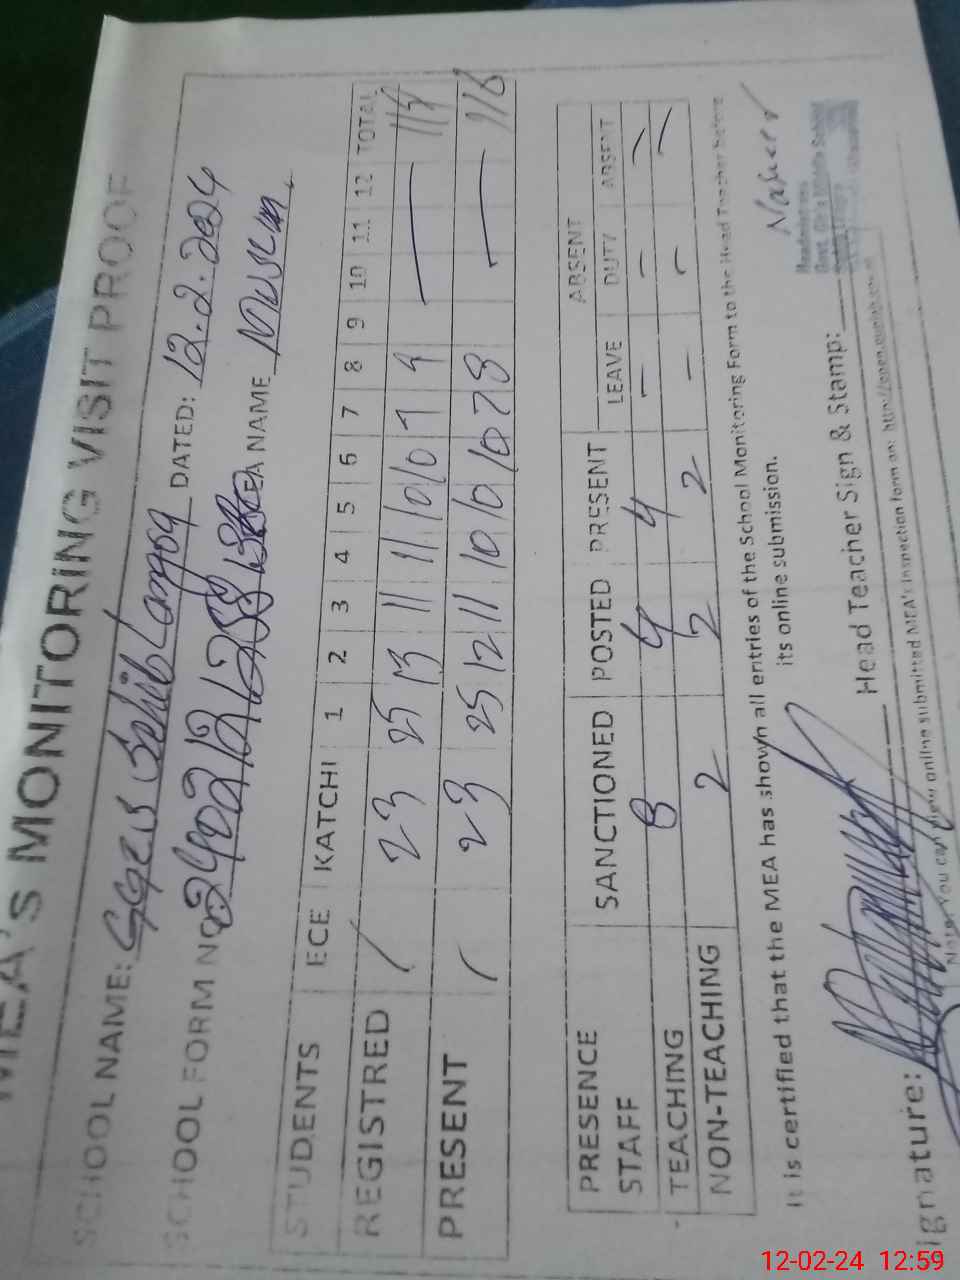 MEA'S MONITORING VISIT PROOF
SCHOOL NAME: DATED: 12.2.2024
SCHOOL FORM NO EA NAME
STUDENTS ECE KATCHI 1 2 3 4 5 6 7 8 9 10 11 12 TOTAL
REGISTRED / 23 25 13 11 11 10 10 9 —
PRESENT / 23 25 12 11 10 10 10 7 8 — 116
PRESENCE SANCTIONED POSTED PRESENT ABSENT
STAFF LEAVE DUTY ABSENT
TEACHING 8 4 4 – –
NON-TEACHING 2 2 2 – –
It is certified that the MEA has shown all entries of the School Monitoring Form to the Head Teacher before
its online submission.
Signature: Head Teacher Sign & Stamp:
Note: You can view online submitted MEA's inspection form on: http://open.punjab.gov
12-02-24 12:59